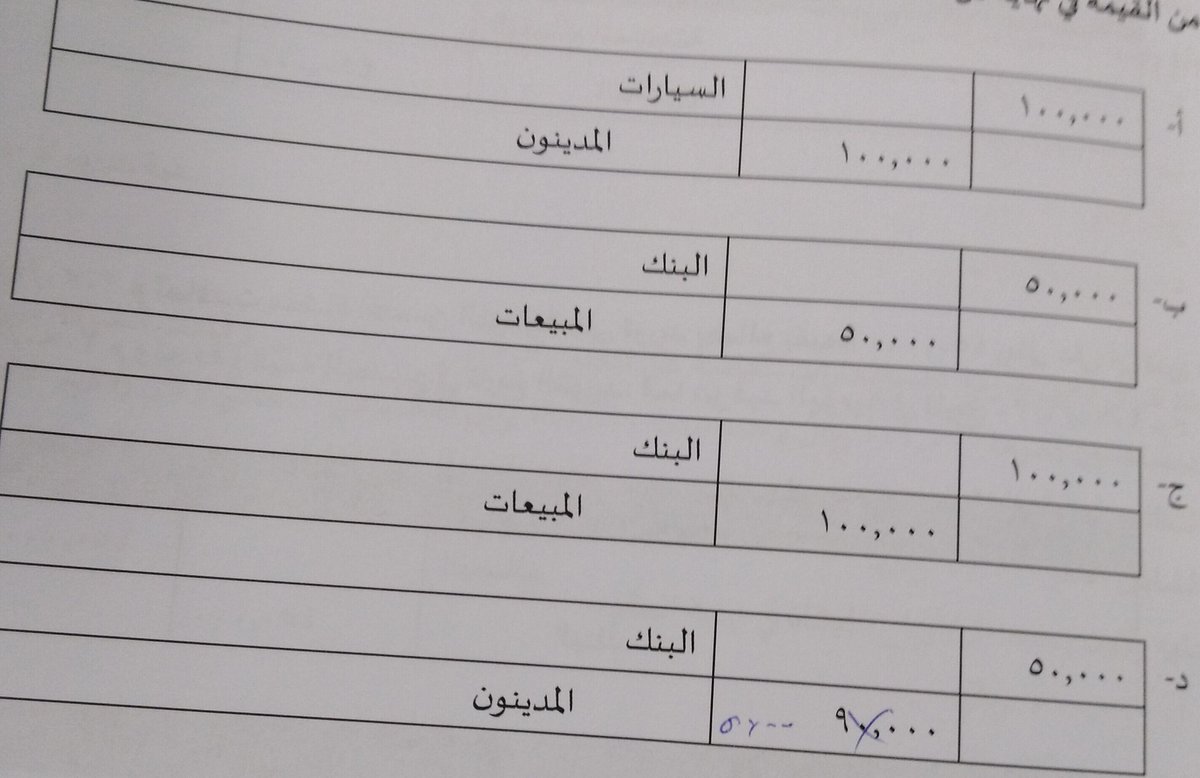 من القيمة في نهاية
أ- ١٠٠,٠٠٠ السيارات
١٠٠,٠٠٠ المدينون
ب- ٥٠,٠٠٠ البنك
٥٠,٠٠٠ المبيعات
ج- ١٠٠,٠٠٠ البنك
١٠٠,٠٠٠ المبيعات
د- ٥٠,٠٠٠ البنك
٩٠,٠٠٠ المدينون